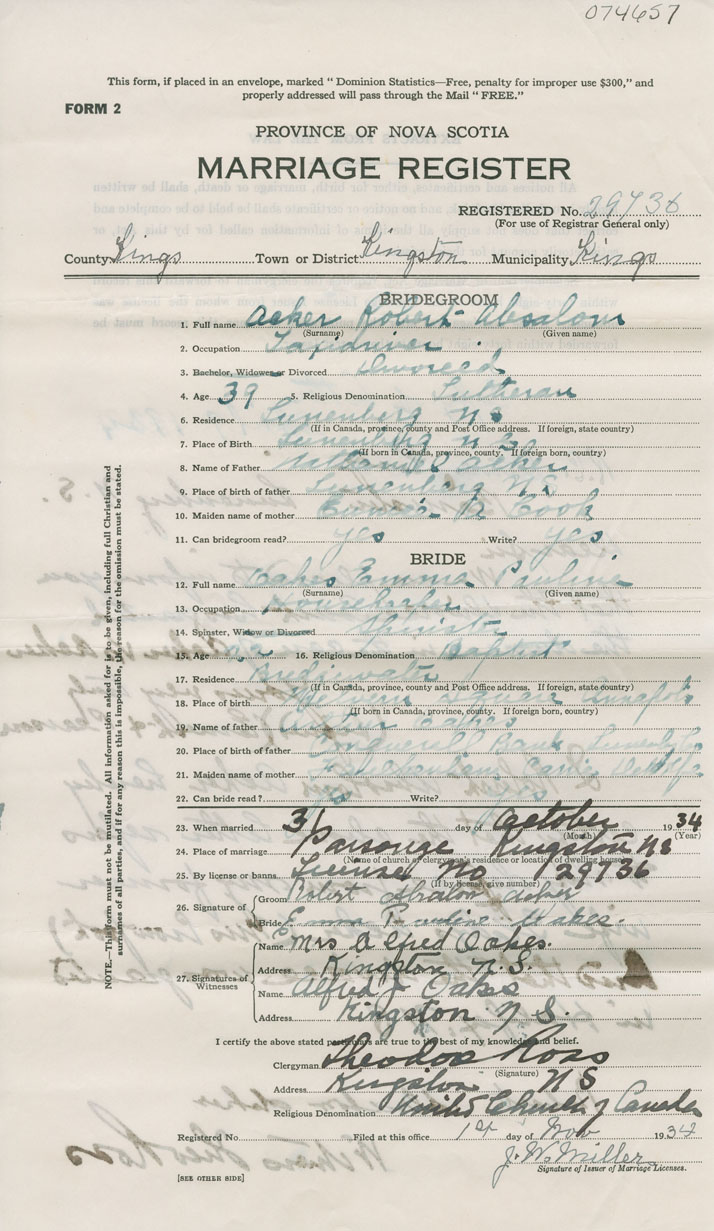 074657
This form, if placed in an envelope, marked " Dominion Statistics—Free, penalty for improper use $300," and
properly addressed will pass through the Mail " FREE."
FORM 2
PROVINCE OF NOVA SCOTIA
MARRIAGE REGISTER
REGISTERED No. 29736
(For use of Registrar General only)
County Kings Town or District Kingston Municipality Kings
BRIDEGROOM
1. Full name Acker Robert Absalom
(Surname) (Given name)
2. Occupation Taxidriver
3. Bachelor, Widower or Divorced Divorced
4. Age 39 5. Religious Denomination Lutheran
6. Residence Lunenberg N S
(If in Canada, province, county and Post Office address. If foreign, state country)
7. Place of Birth Lunenberg N S
(If born in Canada, province, county. If foreign born, country)
8. Name of Father Acker
9. Place of birth of father Lunenberg N S
10. Maiden name of mother Cook
11. Can bridegroom read? yes Write? yes
BRIDE
12. Full name Oakes Emma Paulina
(Surname) (Given name)
13. Occupation Housekeeper
14. Spinster, Widow or Divorced Spinster
15. Age 16. Religious Denomination Baptist
17. Residence Bridgwater
(If in Canada, province, county and Post Office address. If foreign, state country)
18. Place of birth
(If born in Canada, province, county. If foreign born, country)
19. Name of father Oakes
20. Place of birth of father Conquerall Bank Lunenburg Co
21. Maiden name of mother
22. Can bride read? yes Write?
23. When married 31 day of October 1934
(Month) (Year)
24. Place of marriage Parsonage Kingston N S
(Name of church or clergyman's residence or location of dwelling house)
25. By license or banns License No 129736
(If by license, give number)
26. Signature of Groom Robert Absalom Acker
Bride Emma Pauline Oakes.
27. Signatures of Witnesses
Name Mrs Alfred Oakes.
Address Kingston N.S.
Name Alfred J Oakes
Address Kingston N.S.
I certify the above stated particulars are true to the best of my knowledge and belief.
Clergyman Theodore Ross
(Signature)
Address Kingston N S
Religious Denomination United Church of Canada
Registered No. Filed at this office 1st day of Nov 1934
J. W. Miller
Signature of Issuer of Marriage Licenses.
[SEE OTHER SIDE]
NOTE.—This form must not be mutilated. All information asked for is to be given, including full Christian and
surnames of all parties, and if for any reason this is impossible, the reason for the omission must be stated.